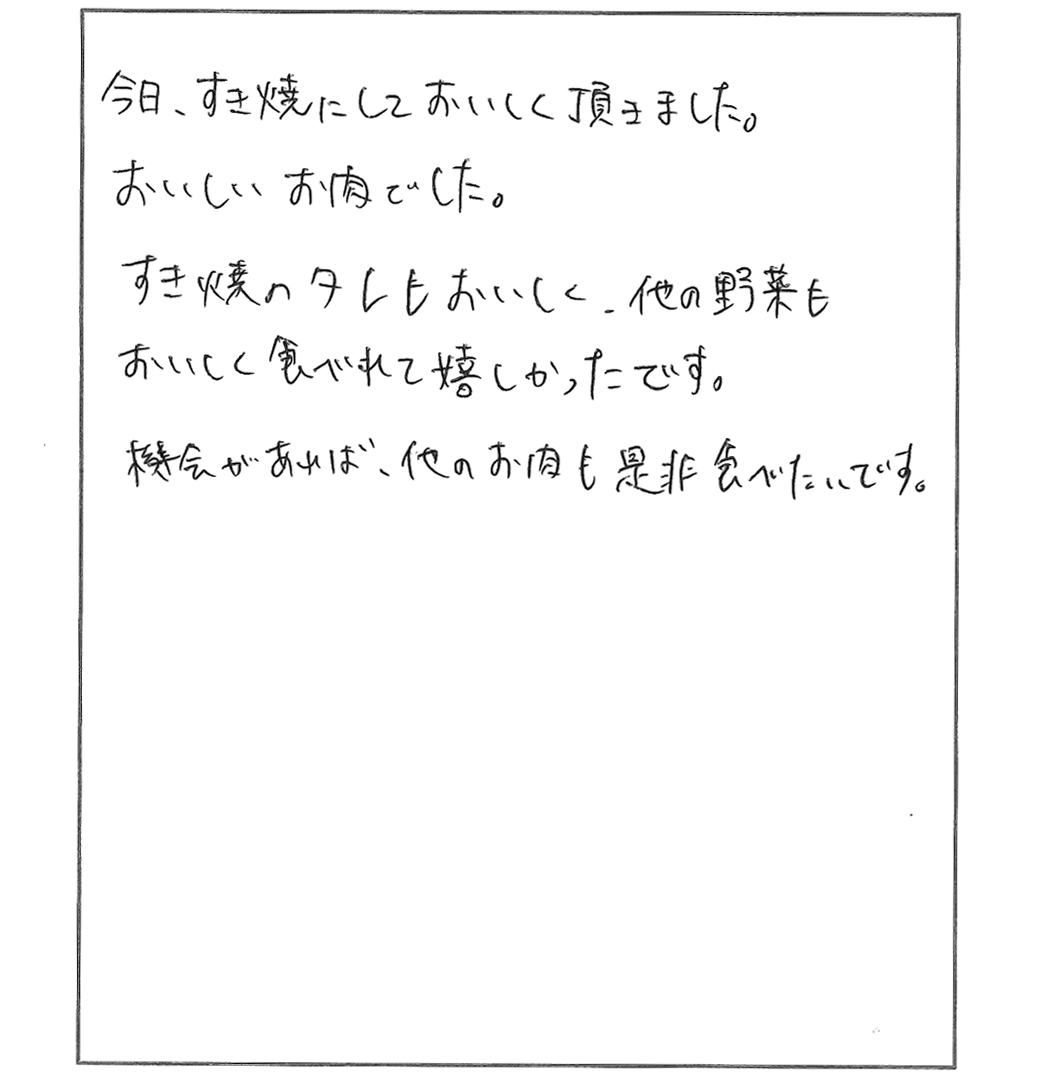 今日、すき焼にしておいしく頂きました。
おいしいお肉でした。
すき焼のタレもおいしく、他の野菜も
おいしく食べれて嬉しかったです。
機会があれば、他のお肉も是非食べたいです。